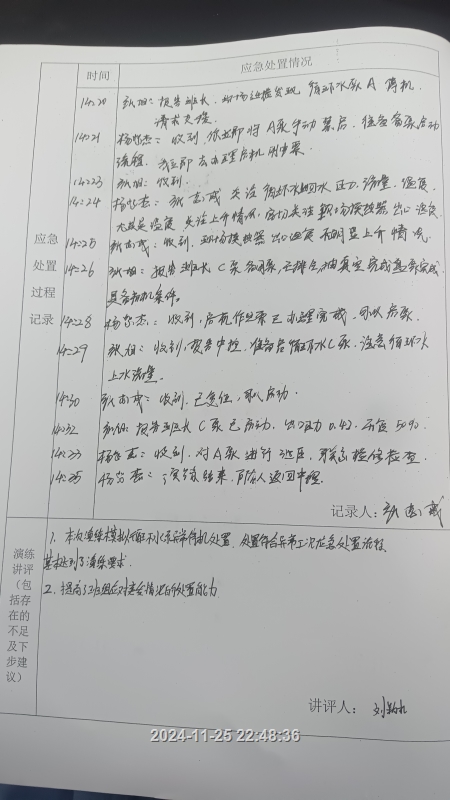 时间
应急处置情况
14:20 张旭:报告班长,现场巡检发现循环水泵A停机,
请求支援。
14:21 杨
杰:收到,你立即将A泵手动禁启,准备备泵启动
流程,我立即去办理启机
14:23 张旭:收到。
14:24 杨
杰:张志成关注循环水回水压力、流量、温度、
温度,关注上升情况,密切关注现场换热器出口温度。
14:25 张志成:收到,现场换热器出口温度无明显上升情况
14:26 张旭:报告班长C泵备用泵,已排气,抽真空完成盘车完成
具备启机条件。
14:28 杨
杰:收到,启机作业票已办理完成,可以启泵。
14:29 张旭:收到,报告中控,准备启循环水C泵,注意循环水
上水流量。
14:30 张志成:收到,已复位,可以启动。
14:32 张旭:报告班长C泵已启动,出口压力0.42,开度50%。
14:33 杨
杰:收到,对A泵进行
联系检修检查。
14:35 杨
杰:演练结束,所有人返回中控。
应急
处置
过程
记录
记录人:张志成
演练
讲评
(包
括存
在的
不足
及下
步建
议)
1、本次演练模拟循环水泵异常停机处置,处置符合异常工况应急处置流程,
基本达到了演练要求。
2、提高了班组应对突发情况的处置能力
讲评人:刘
2024-11-25 22:48:36